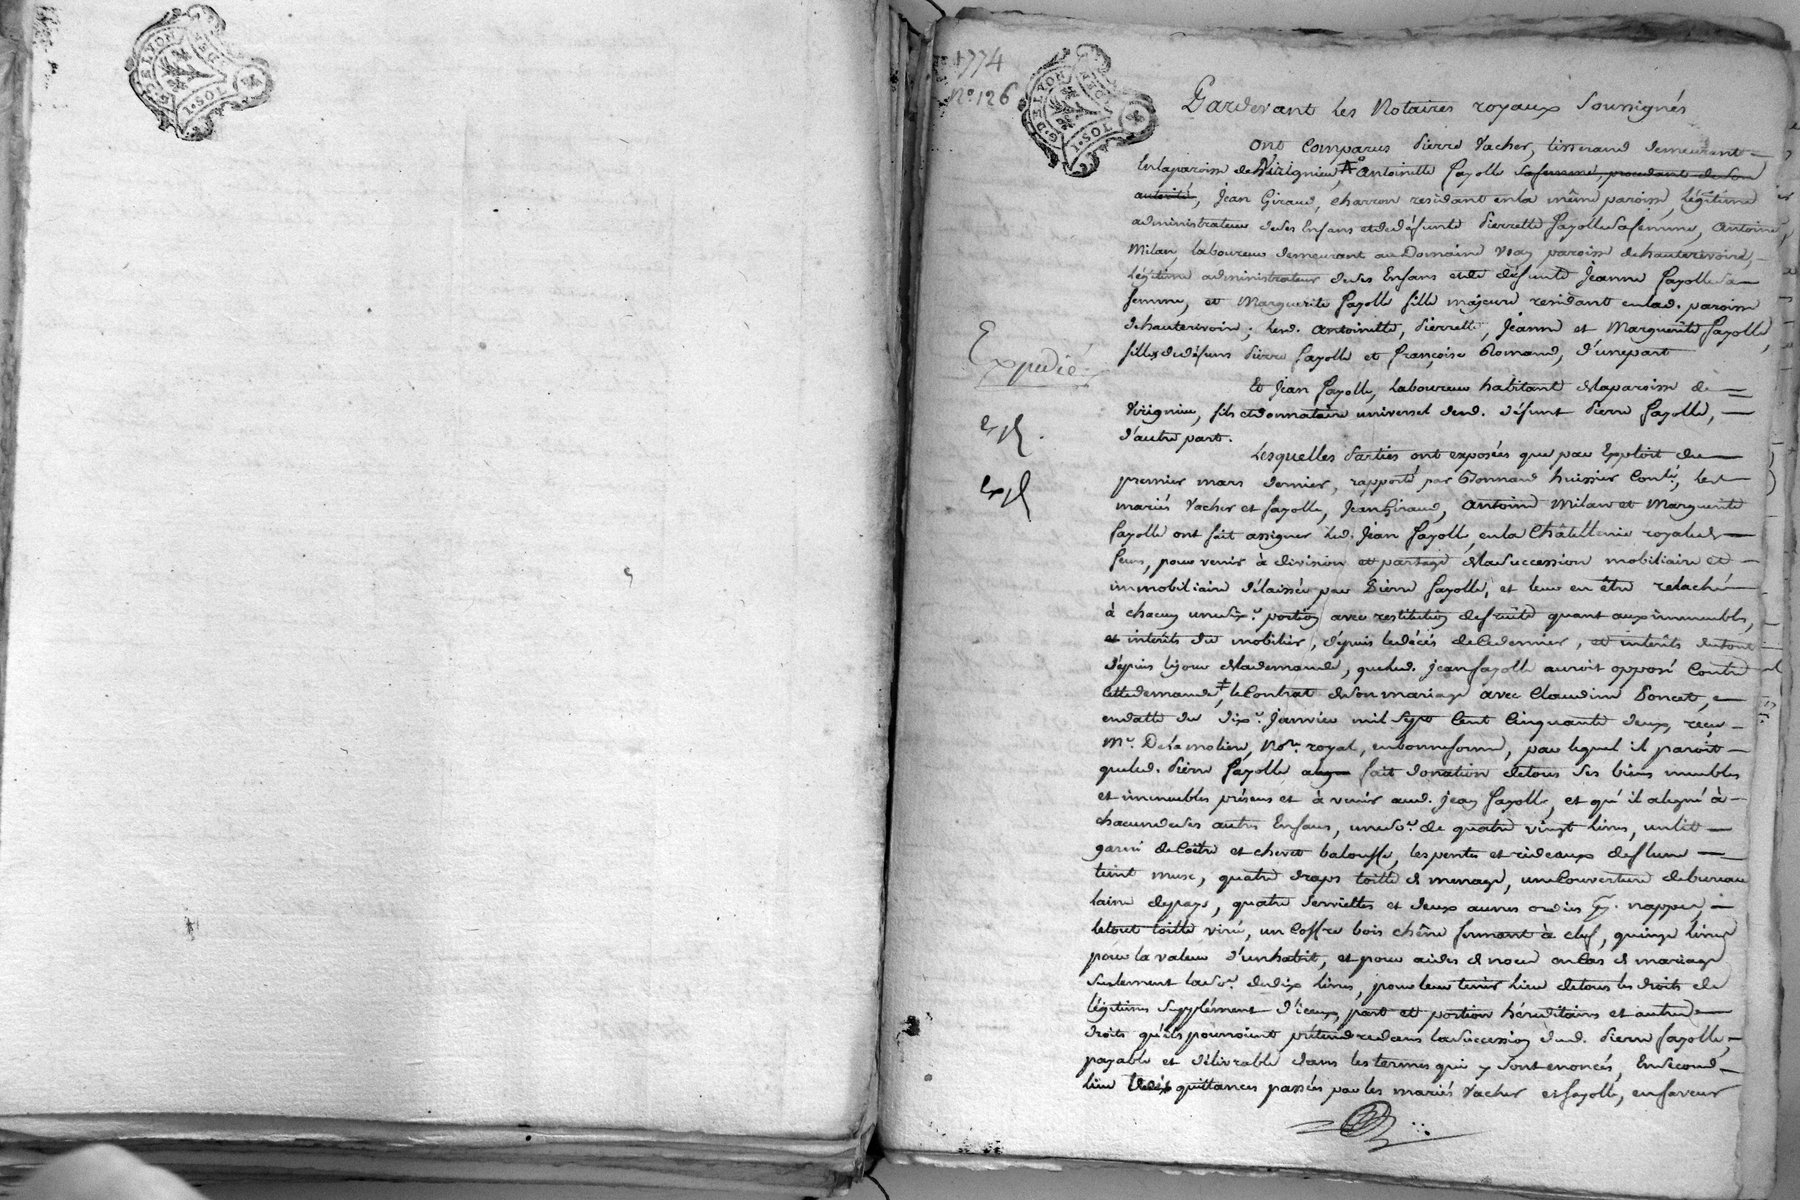 G. DE LYON
2 DEN
1 SOL
1774
N.º 126
G. DE LYON
2 DEN
1 SOL
Pardevant les Notaires royaux soussignés
ont comparus Pierre Vacher, tisserand demeurant
en la paroisse de Virignieu, Antoinette Fayolle sa femme, procedant de son
autorité, Jean Giraud, charron residant en la même paroisse, légitime
administrateur de ses Enfans et de défunte Pierrette Fayolle sa femme, Antoine
Milan, laboureur demeurant au Domaine paroisse de hauterivoire,
légitime administrateur de ses Enfans et de défunte Jeanne Fayolle sa
femme, et Marguerite Fayolle fille majeure residant en lad. paroisse
de hauterivoire; lesd. Antoinette, Pierrette, Jeanne et Marguerite Fayolle,
filles de défuns Pierre Fayolle et françoise Romand, d'unepart
Et Jean Fayolle, laboureur habitant de la paroisse de
Virignieu, fils et donnataire universel dud. défunt Pierre Fayolle,
d'autre part.
Expedié
Lesquelles Parties ont exposées que par Exploit du
premier mars dernier, rapporté par huissier Conlé, les
mariés Vacher et fayolle, Jean Giraud, Antoine Milan et Marguerite
fayolle ont fait assigner led. Jean Fayolle, en la Châtellenie royale de
feurs, pour venir à division et partage de la succession mobiliaire et
immobiliaire délaissée par Pierre Fayolle, et leur en être relaché
à chacun une six.e portion avec restitution de fruits quant aux immeubles,
et intérêts du mobilier, depuis le décés de ce dernier, et intérêts du tout
depuis le jour de la demande, que led. Jean fayolle auroit opposé contre
cette demande, le contrat de son mariage avec Claudine Poncet, en
datte du dix.e Janvier mil sept cent cinquante deux, reçu
M.e Delamoliere, No.re royal, en bonne forme, par lequel il paroit
que led. Pierre Fayolle fait donation de tous ses biens meubles
et immeubles présens et à venir aud. Jean Fayolle, et qu'il a légué à
chacun de ses autres Enfans, une so.e de quatre vingt livres, un lit
garni de coëtre et chevet balouffe, les pentes et rideaux de flune
teint musc, quatre draps toille de menage, une couverture de bureau
laine de pays, quatre serviettes et deux aunes nappes,
le tout toille viré, un coffre bois chêne fermant à clef, quinze livres
pour la valeur d'un habit, et pour aides de noce en cas de mariage
seulement la so.e de dix livres, pour leur tenir lieu de tous les droits de
légitime supplément d'iceux, part et portion héréditaire et autres
droits qu'ils pourroient prétendre dans la succession dud. Pierre fayolle,
payable et délivrable dans les termes qui y sont enoncés, En second
lieu trois quittances passées par les mariés Vacher et fayolle, en faveur